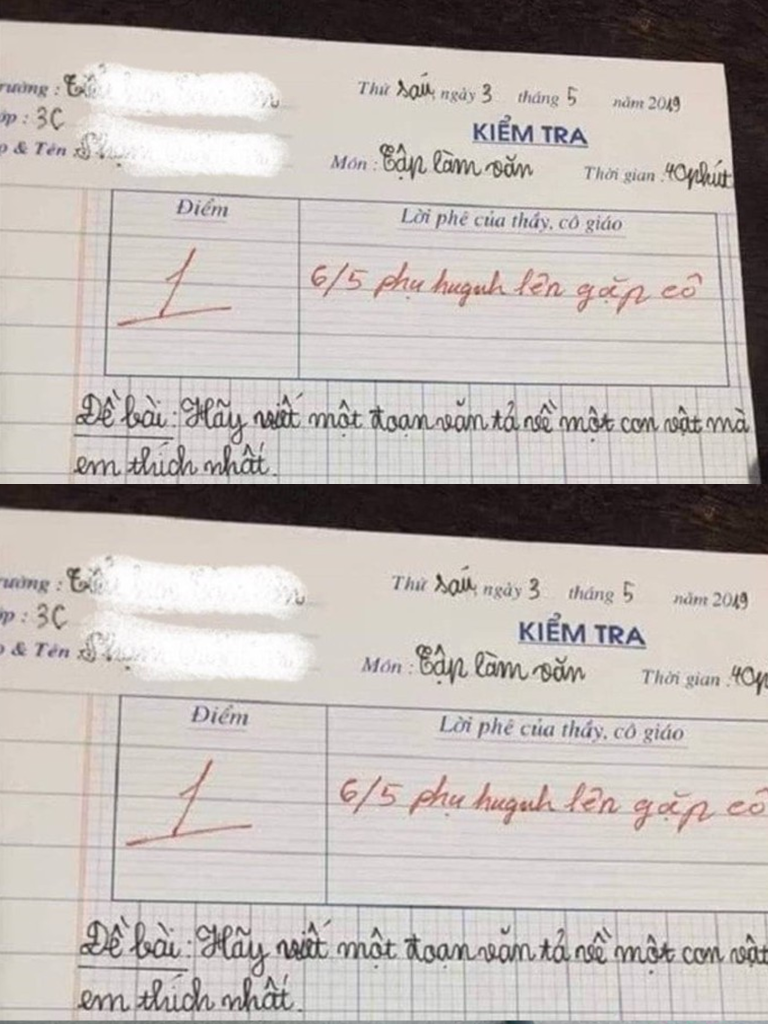 rường : Tiể
Thứ sáu, ngày 3 tháng 5 năm 2019
ớp : 3C
KIỂM TRA
& Tên
Môn : Tập làm văn
Thời gian : 40 phút
Điểm
Lời phê của thầy, cô giáo
1
6/5 phụ huynh lên gặp cô
Đề bài : Hãy viết một đoạn văn tả về một con vật mà
em thích nhất.
rường : Tiể
Thứ sáu, ngày 3 tháng 5 năm 2019
ớp : 3C
KIỂM TRA
& Tên
Môn : Tập làm văn
Thời gian : 40p
Điểm
Lời phê của thầy, cô giáo
1
6/5 phụ huynh lên gặp cô
Đề bài : Hãy viết một đoạn văn tả về một con vật
em thích nhất.